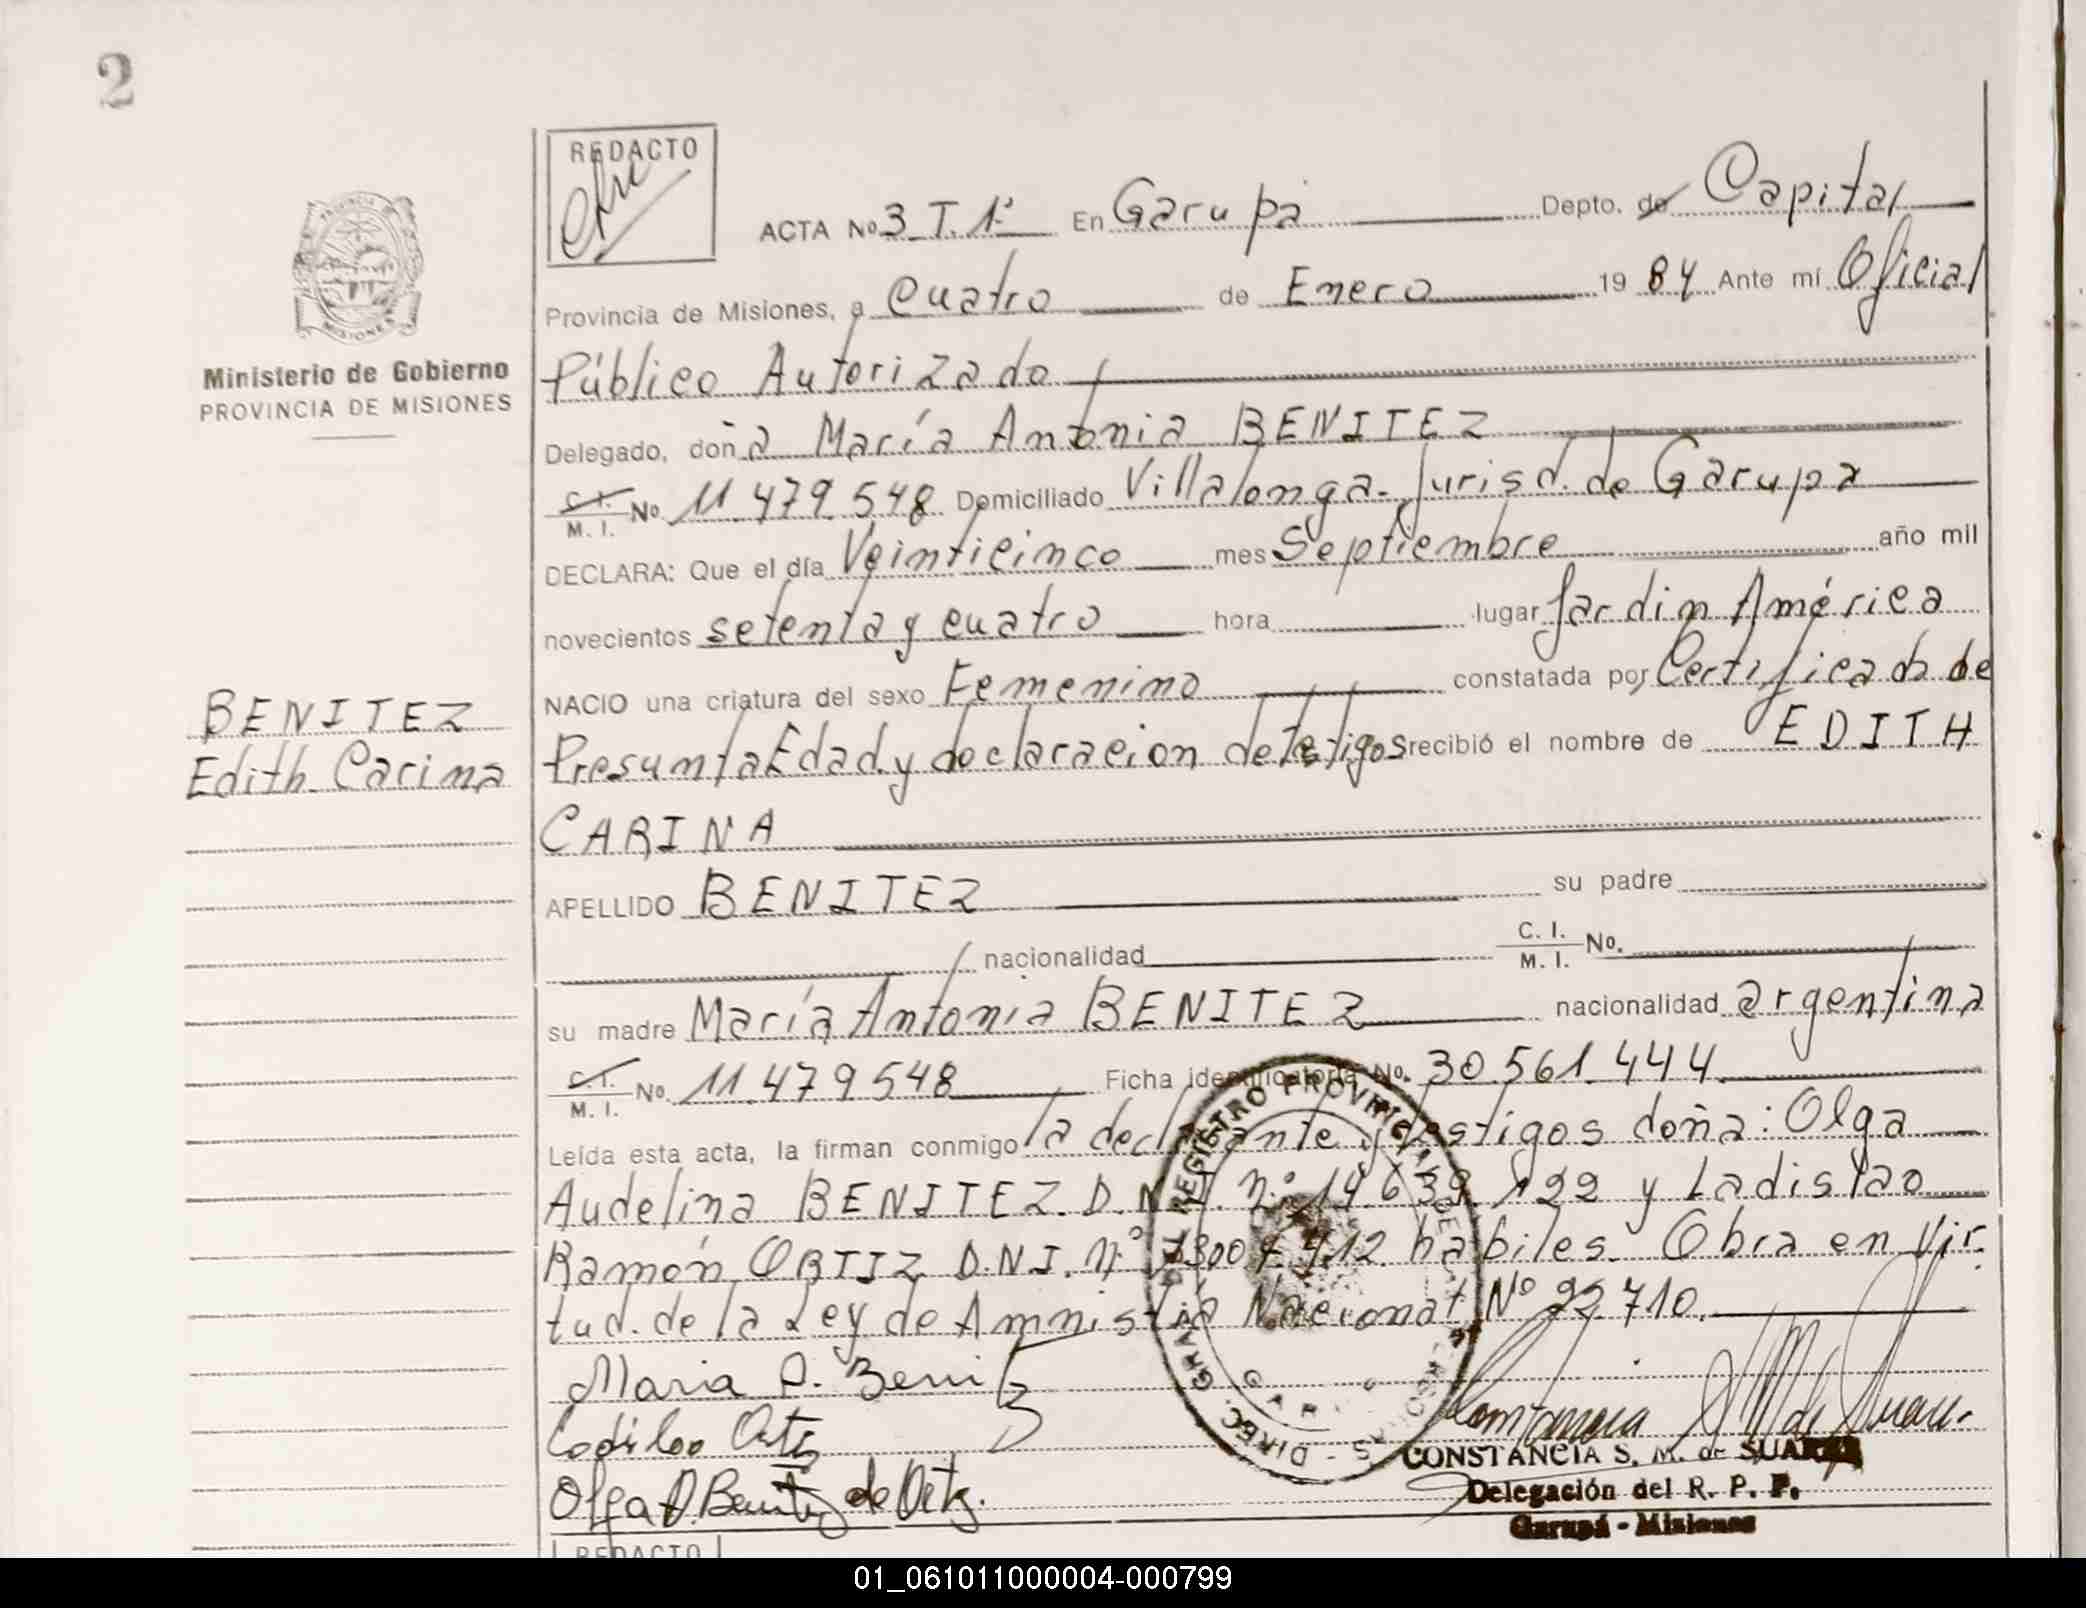 2
REDACTO
ACTA No 3 T. 1º En Garupá Depto. de Capital
Provincia de Misiones, a cuatro de Enero 1984 Ante mí Oficial
Público Autorizado
Delegado, doña María Antonia BENITEZ
C. I. M. I. No 11.479.548 Domiciliado Villalonga- Jurisd. de Garupa
DECLARA: Que el día Veinticinco mes Septiembre año mil
novecientos setenta y cuatro hora lugar Jardin América
NACIO una criatura del sexo Femenino constatada por Certificado de
Presunta Edad y declaracion de Testigos recibió el nombre de EDITH
CARINA
APELLIDO BENITEZ su padre
nacionalidad C. I. M. I. No.
su madre María Antonia BENITEZ nacionalidad argentina
C. I. M. I. No 11.479548 Ficha identificatoria No. 30.561.444
Leída esta acta, la firman conmigo la declarante y testigos doña: Olga
Audelina BENITEZ. D.N.I. n:º 14.639.122 y Ladislao
Ramón ORTIZ D.N.I. nº habiles. Obra en Vir-
tud. de la Ley de Amnistia Nacional Nº 22.710.
Maria A. Benitez
Ortiz
Olga A. Benitez de Ortiz.
CONSTANCIA S. M. de SUAREZ
Delegación del R. P. P.
Garupá - Misiones
DIREC. GRAL. REGISTRO PROVINCIAL DE LAS PERSONAS
PROVINCIA DE
MISIONES
Ministerio de Gobierno
PROVINCIA DE MISIONES
BENITEZ
Edith Carina
REDACTO
01_061011000004-000799